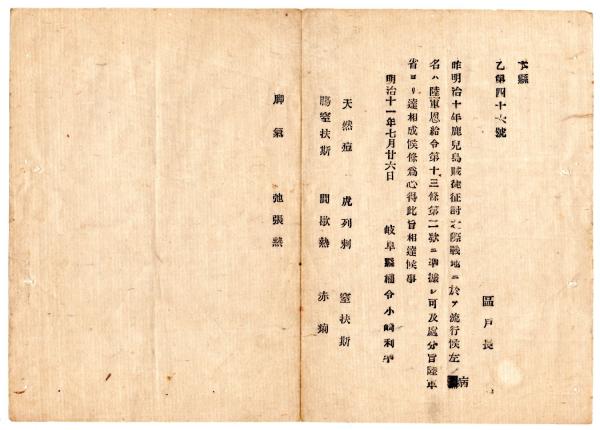 本縣
乙第四十六號
區戸長
昨明治十年鹿兒島賊徒征討之際戰地ニ於テ流行候左ノ病
名ハ陸軍恩給令第十三條第二欵ニ準據シ可及處分旨陸軍
省ヨリ達相成候條爲心得此旨相達候事
明治十一年七月廿六日
岐阜縣權令小崎利準
天然痘 虎列剌 窒扶斯
腸窒扶斯 間歇熱 赤痢
脚氣 弛張熱